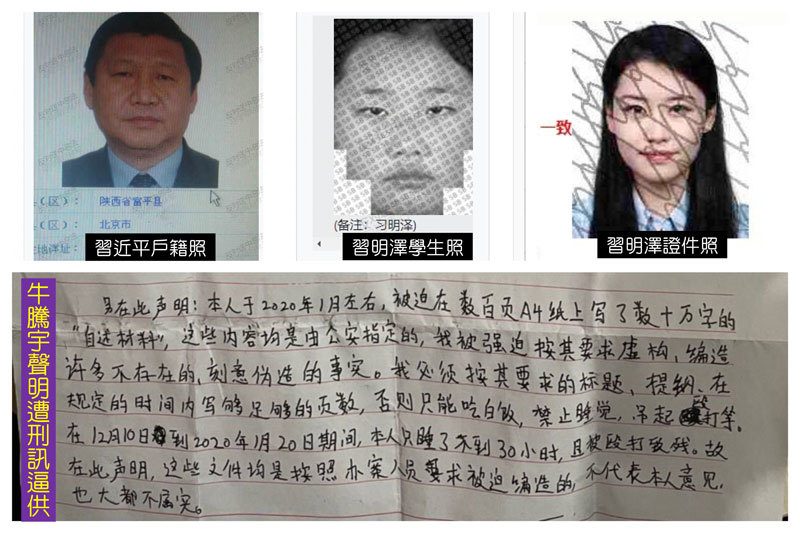 （区）： 陕西省富平县
（区）： 北京市
地详址：
習近平戶籍照
(备注：习明泽)
習明澤學生照
一致
習明澤證件照
牛騰宇聲明遭刑訊逼供
另在此声明：本人于2020年1月左右，被迫在数百页A4纸上写了数十万字的
"自述材料"，这些内容均是由公安指定的，我被强迫按其要求虚构、编造
许多不存在的、刻意伪造的事实。我必须按其要求的标题、提纲、在
规定的时间内写够足够的页数，否则只能吃白饭，禁止睡觉，吊起殴打等。
在12月10日到2020年1月20日期间，本人只睡了不到30小时，且被殴打致残。故
在此声明，这些文件均是按照办案人员要求被迫编造的，不代表本人意见，
也大都不属实。